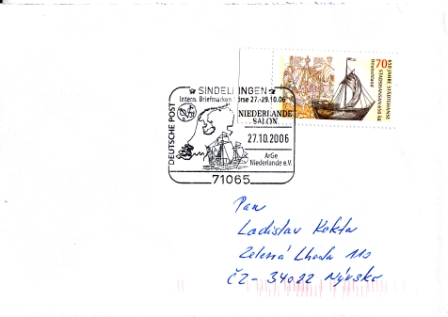 SINDELFINGEN
Intern. Briefmarken-Börse 27.-29.10.06
DEUTSCHE POST
NIEDERLANDE
SALON
27.10.2006
ArGe
Niederlande e.V.
71065
70
Deutschland
Pan
Ladislav Kokta
Zelená Lhota 110
ČZ - 34022 Nýrsko